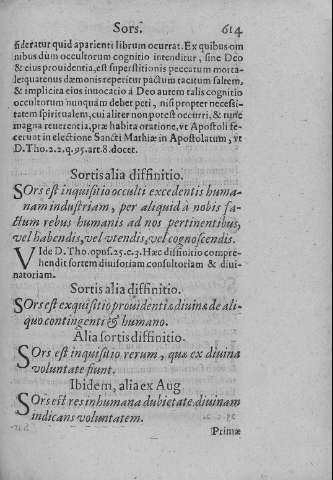 Sors. 614
sideratur quid aparienti librum ocurrat. Ex quibus om
nibus dum occultorum cognitio intenditur, sine Deo
& eius prouidentia, est superstitionis peccatum morta-
le: quatenus dæmonis reperitur pactum tacitum saltem,
& implicita eius inuocatio à Deo autem talis cognitio
occultorum nunquam debet peti, nisi propter necessi-
tatem spiritualem, cui aliter non potest occurri, & tunc
magna reuerentia, præ habita oratione, vt Apostoli fe-
cerunt in electione Sancti Mathiæ in Apostolatum, vt
D. Tho. 2.2. q. 95. art. 8. docet.
Sortis alia diffinitio.
SOrs est inquisitio occulti excedentis huma-
nam industriam, per aliquid à nobis fa-
ctum rebus humanis ad nos pertinentibus,
vel habendis, vel vtendis, vel cognoscendis.
VIde D. Tho. opus. 25. c. 3. Hæc diffinitio compre-
hendit sortem diuisoriam consultoriam & diui-
natoriam.
Sortis alia diffinitio.
SOrs est exquisitio prouidentiæ diuinæ de ali-
quo contingenti & humano.
Alia sortis diffinitio.
SOrs est inquisitio rerum, quæ ex diuina
voluntate fiunt.
Ibidem, alia ex Aug
SOrs est res in humana dubietate, diuinam
indicans voluntatem.
Primæ